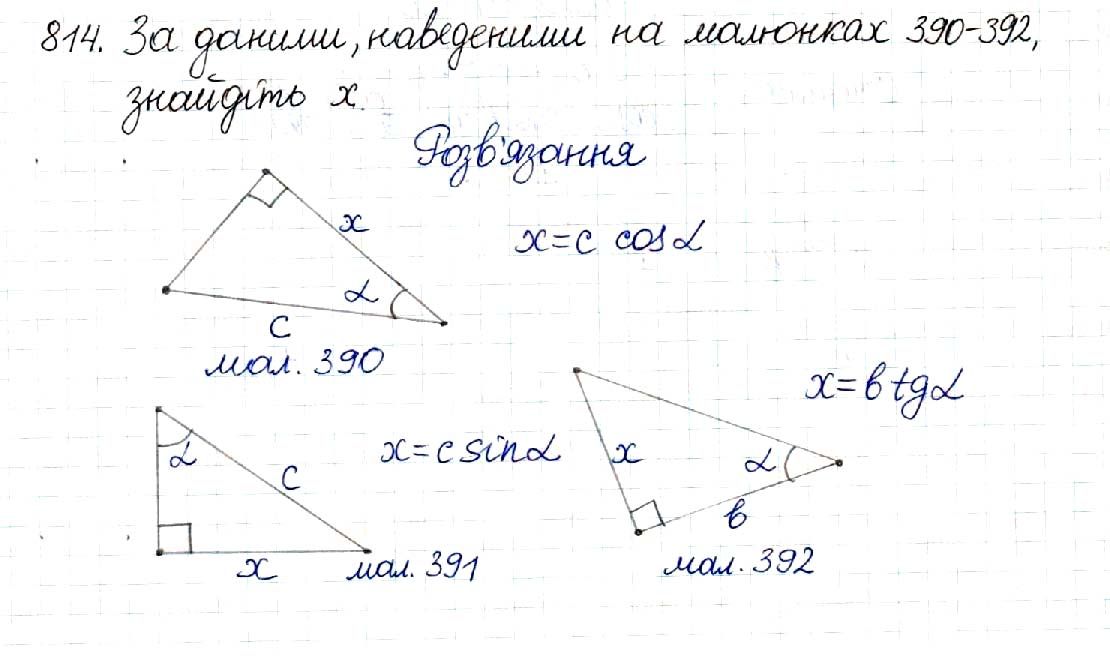 814. За даними, наведеними на малюнках 390-392,
знайдіть x.
Розв'язання
x
α
c
x = c cosα
мал. 390
α
c
x
x = c sinα
мал. 391
x
α
в
x = в tgα
мал. 392